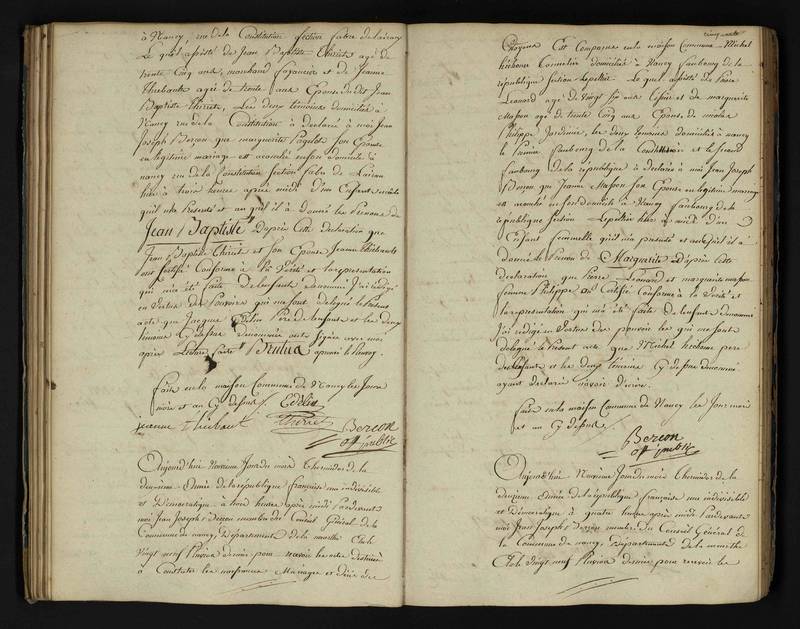 à Nancy, rue de la Constitution section
Le quel assisté de Jean Baptiste Thiriet agé de
trente Cinq ans, marchand et de Jeanne
Thiebault agée de trente ans Epouse dudit Jean
Baptiste Thiriet, Les deux témoins domiciliés à
Nancy rue de la Constitution à déclaré à moi Jean
Joseph Berson que marguerite son Epouse
en légitime mariage est accouchée en son domicile à
nancy rue de la Constitution section
à trois heures après midi d'un Enfant mâle
qu'il m'a Présenté et au quel il à donné les Prénoms de
Jean Baptiste D'après Cette Déclaration que
Jean Baptiste Thiriet et son Epouse Jeanne Thiebault
ont Certifié Conforme à La Vérité et la représentation
qui m'a été faite de l'enfant dénommé J'ai rédigé
en Vertu des Pouvoirs qui me sont délégué le Présent
acte que Jacque Edelin Père de l'enfant et les deux
témoins Cy dessus dénommés ont Signés avec moi
après Lecture faite
Fait en la maison Commune de Nancy les Jour
mois et an Cy dessus Edelin
jeanne thiebault thiriet Berson
off publie
Aujourd'hui Jour du mois Thermidor de la
deuxieme Année de la république française une indivisible
et Démocratique à trois heures après midi Pardevant
moi Jean Joseph Berson membre du Conseil Général de la
Commune de nancy, Département de la meurthe Elu le
Vingt neuf Pluviose dernier pour recevoir les actes destinés
à Constater les naissances Mariages et décès des
Citoyens Est Comparu en la maison Commune Michel
domicilié à Nancy faubourg de la
république section Lepelletier Le quel assisté de Pierre
Léonard agé de Vingt six ans et de marguerite
Masson agée de trente Cinq ans Epouse de nicolas
Philippe Jardinier, les deux témoins domiciliés à nancy
le Premier faubourg de la Constitution et le Second
faubourg de la république à déclaré à moi Jean Joseph
Berson que Jeanne Masson son Epouse en légitime mariage
est accouchée en son domicile à Nancy faubourg de la
république section Lepelletier hier à midi d'un
Enfant femmelle qu'il m'a présenté et auquel il à
donné le Prénom de Marguerite D'après Cette
déclaration que Pierre Léonard et marguerite masson
femme Philippe ont Certifié Conforme à la Vérité et
la représentation qui m'a été faite de l'enfant dénommé
J'ai rédigé en Vertu des pouvoirs qui me sont
délégué le Présent acte que Michel pere
de l'Enfant et les deux témoins Cy dessus dénommés
ayant déclaré savoir d'écrire
Fait en la maison Commune de Nancy les Jour mois
et an Cy dessus
Berson
off publie
Aujourd'hui Jour du mois Thermidor de la
deuxieme Année de la république française une indivisible
et Démocratique à quatre heures après midi Pardevant
moi Jean Joseph Berson membre du Conseil Général de
la Commune de nancy, Département de la meurthe
Elu le Vingt neuf Pluviose dernier pour recevoir les